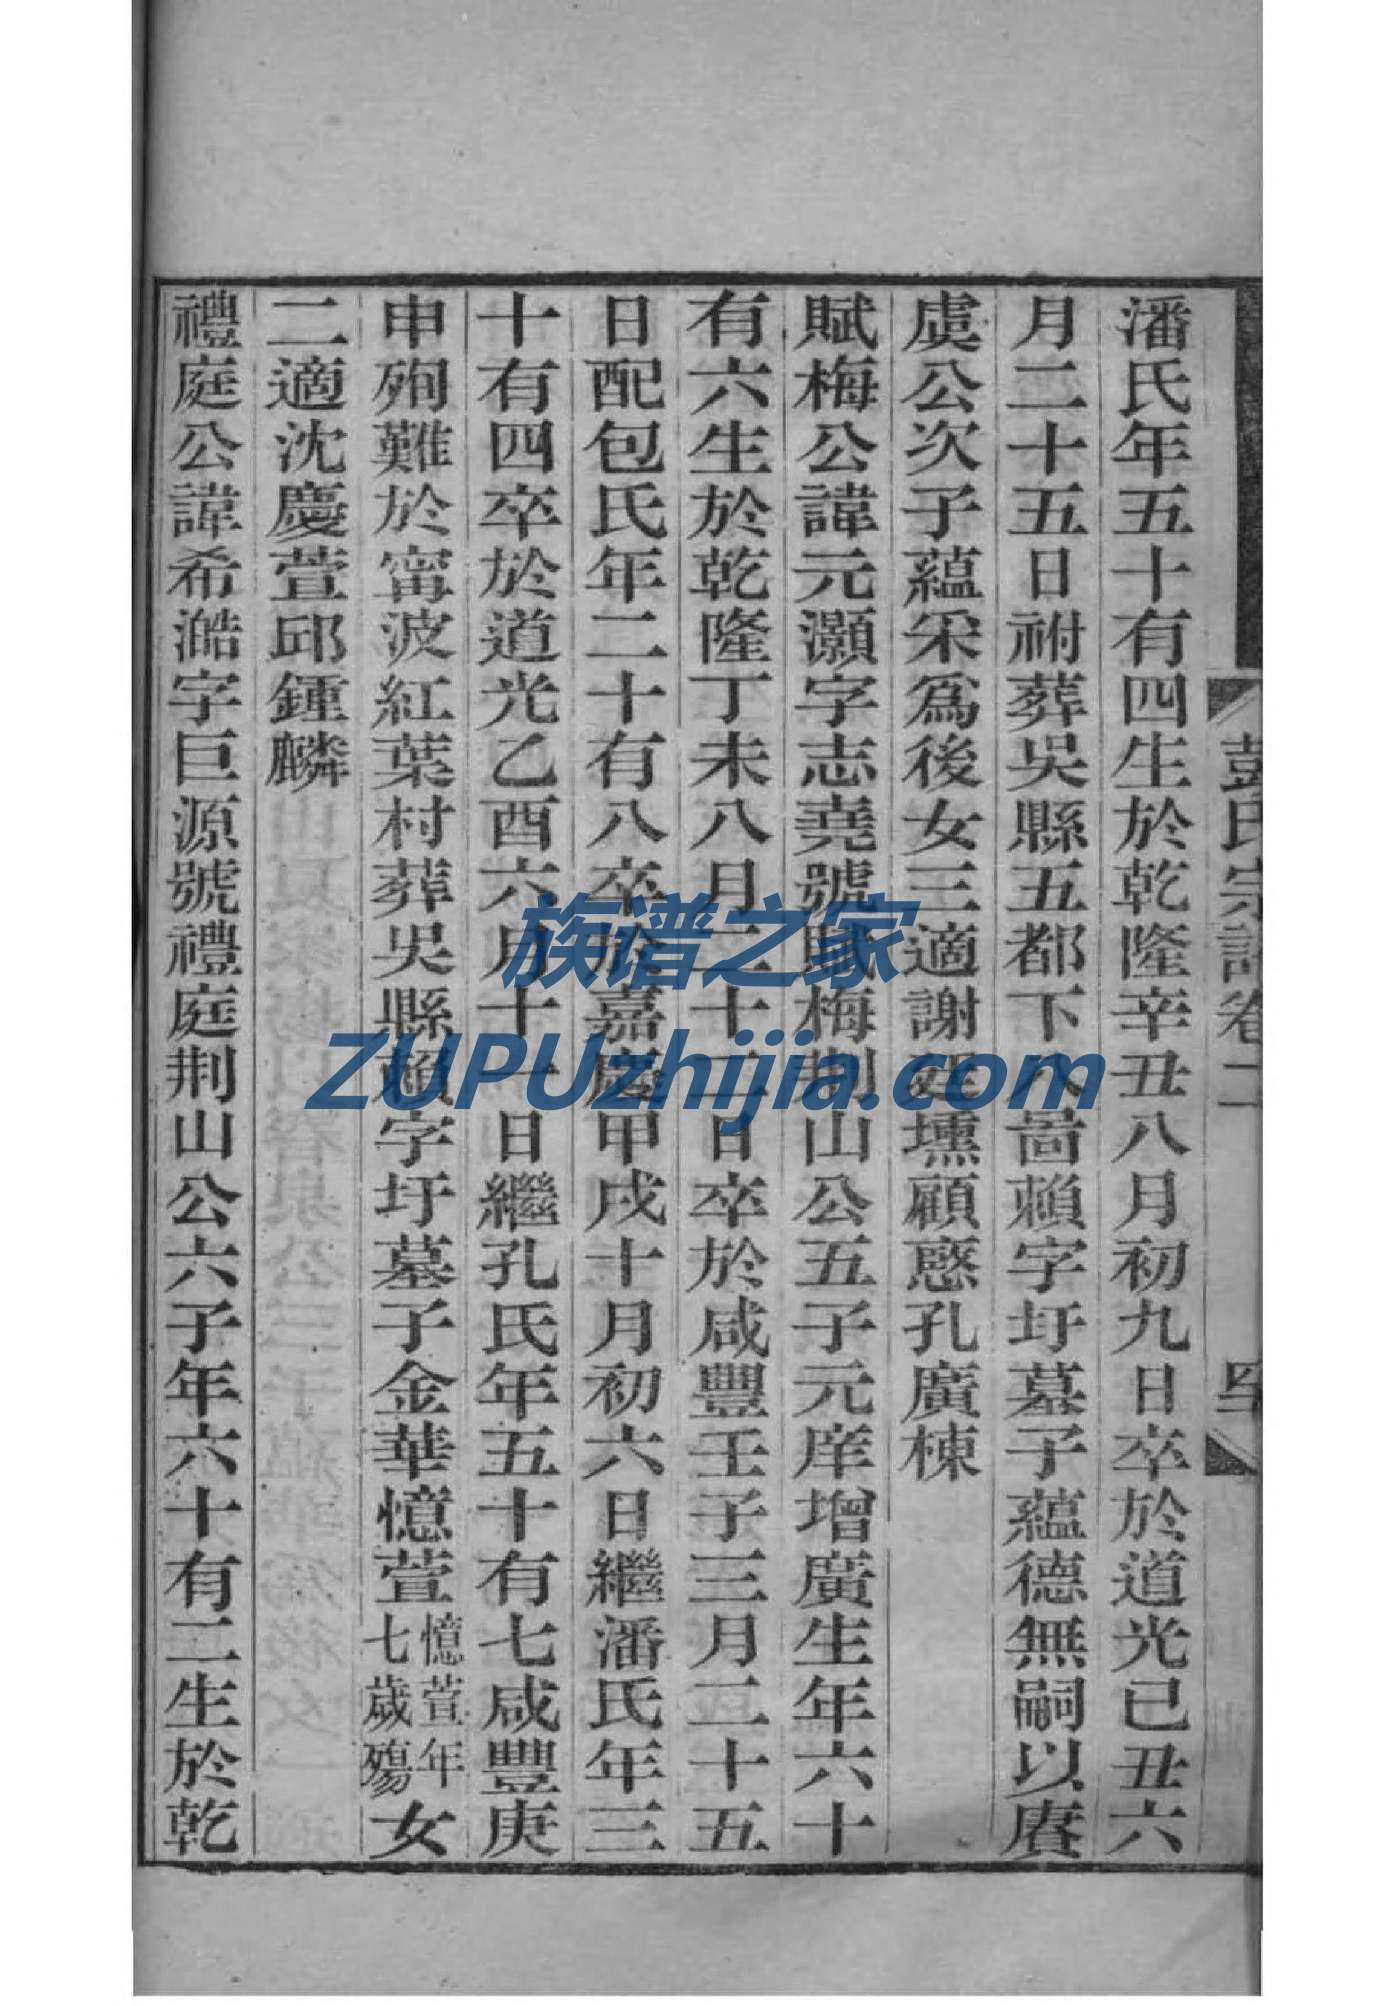 彭氏宗譜卷二
潘氏年五十有四生於乾隆辛丑八月初九日卒於道光己丑六
月二十五日祔葬吳縣五都下八啚賴字圩墓子蘊德無嗣以賡
虞公次子蘊采爲後女三適謝廷壎顧慜孔廣棟
賦梅公諱元灝字志堯號賦梅荆山公五子元庠增廣生年六十
有六生於乾隆丁未八月二十二日卒於咸豐壬子三月二十五
日配包氏年二十有八卒於嘉慶甲戌十月初六日繼潘氏年三
十有四卒於道光乙酉六月十一日繼孔氏年五十有七咸豐庚
申殉難於甯波紅葉村葬吳縣賴字圩墓子金華憶萱憶萱年七歲殤女
二適沈慶萱邱鍾麟
禮庭公諱希澔字巨源號禮庭荆山公六子年六十有二生於乾
族谱之家
ZUPUzhijia.com